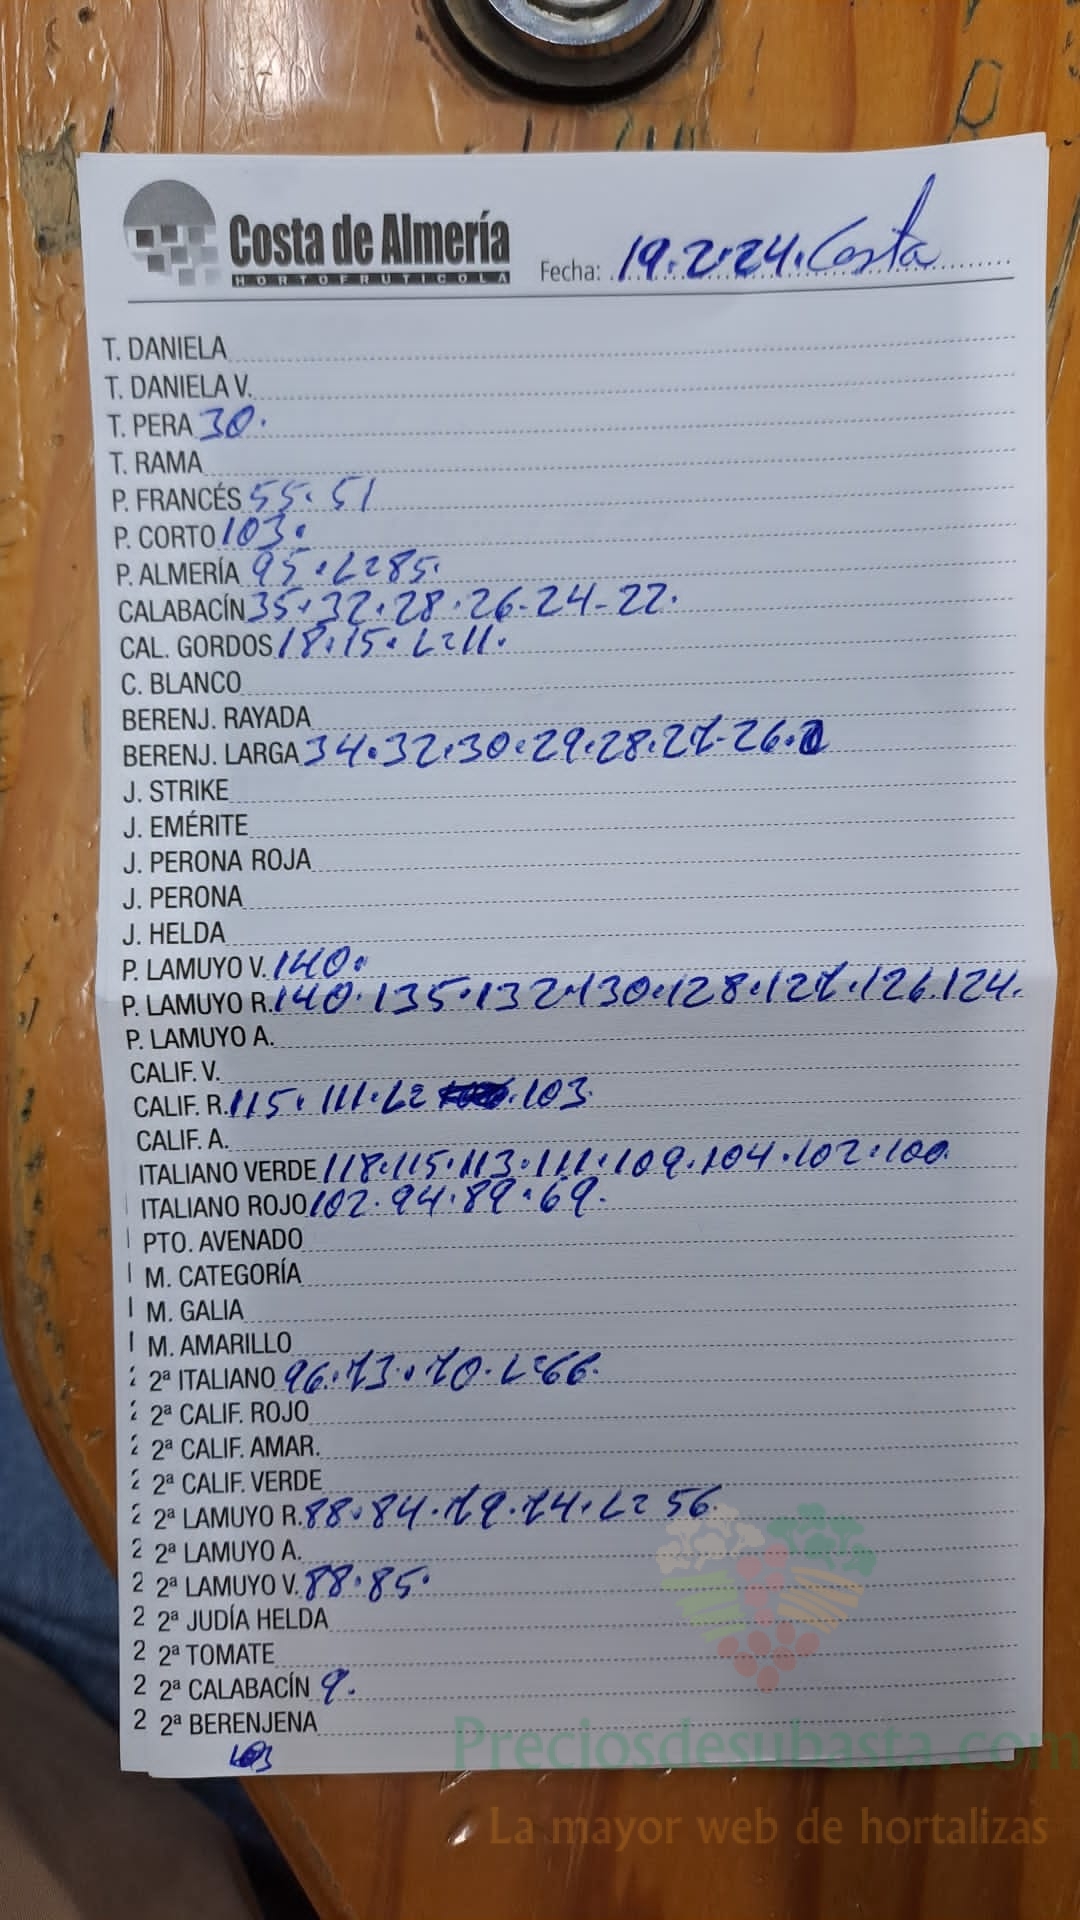 Costa de Almería
HORTOFRUTICOLA
Fecha: 19.2.24. Costa
T. DANIELA
T. DANIELA V.
T. PERA 30.
T. RAMA
P. FRANCÉS 55. 51
P. CORTO 103.
P. ALMERÍA 95. L=85.
CALABACÍN 35. 32. 28. 26-24-22.
CAL. GORDOS 18. 15. L=11.
C. BLANCO
BERENJ. RAYADA
BERENJ. LARGA 34. 32. 30. 29. 28. 27-26.
J. STRIKE
J. EMÉRITE
J. PERONA ROJA
J. PERONA
J. HELDA
P. LAMUYO V. 140.
P. LAMUYO R. 140. 135. 132. 130. 128. 127. 126. 124.
P. LAMUYO A.
CALIF. V.
CALIF. R. 115. 111. L= 103.
CALIF. A.
ITALIANO VERDE 118. 115. 113. 111. 109. 104. 102. 100.
ITALIANO ROJO 102. 94. 89. 69.
PTO. AVENADO
M. CATEGORÍA
M. GALIA
M. AMARILLO
2ª ITALIANO 96. 73. 70. L=66.
2ª CALIF. ROJO
2ª CALIF. AMAR.
2ª CALIF. VERDE
2ª LAMUYO R. 88. 84. 79. 74. L=56.
2 2ª LAMUYO A.
2 2ª LAMUYO V. 88. 85.
2 2ª JUDÍA HELDA
2 2ª TOMATE
2 2ª CALABACÍN 9.
2 2ª BERENJENA
Preciosdesubasta.com
La mayor web de hortalizas